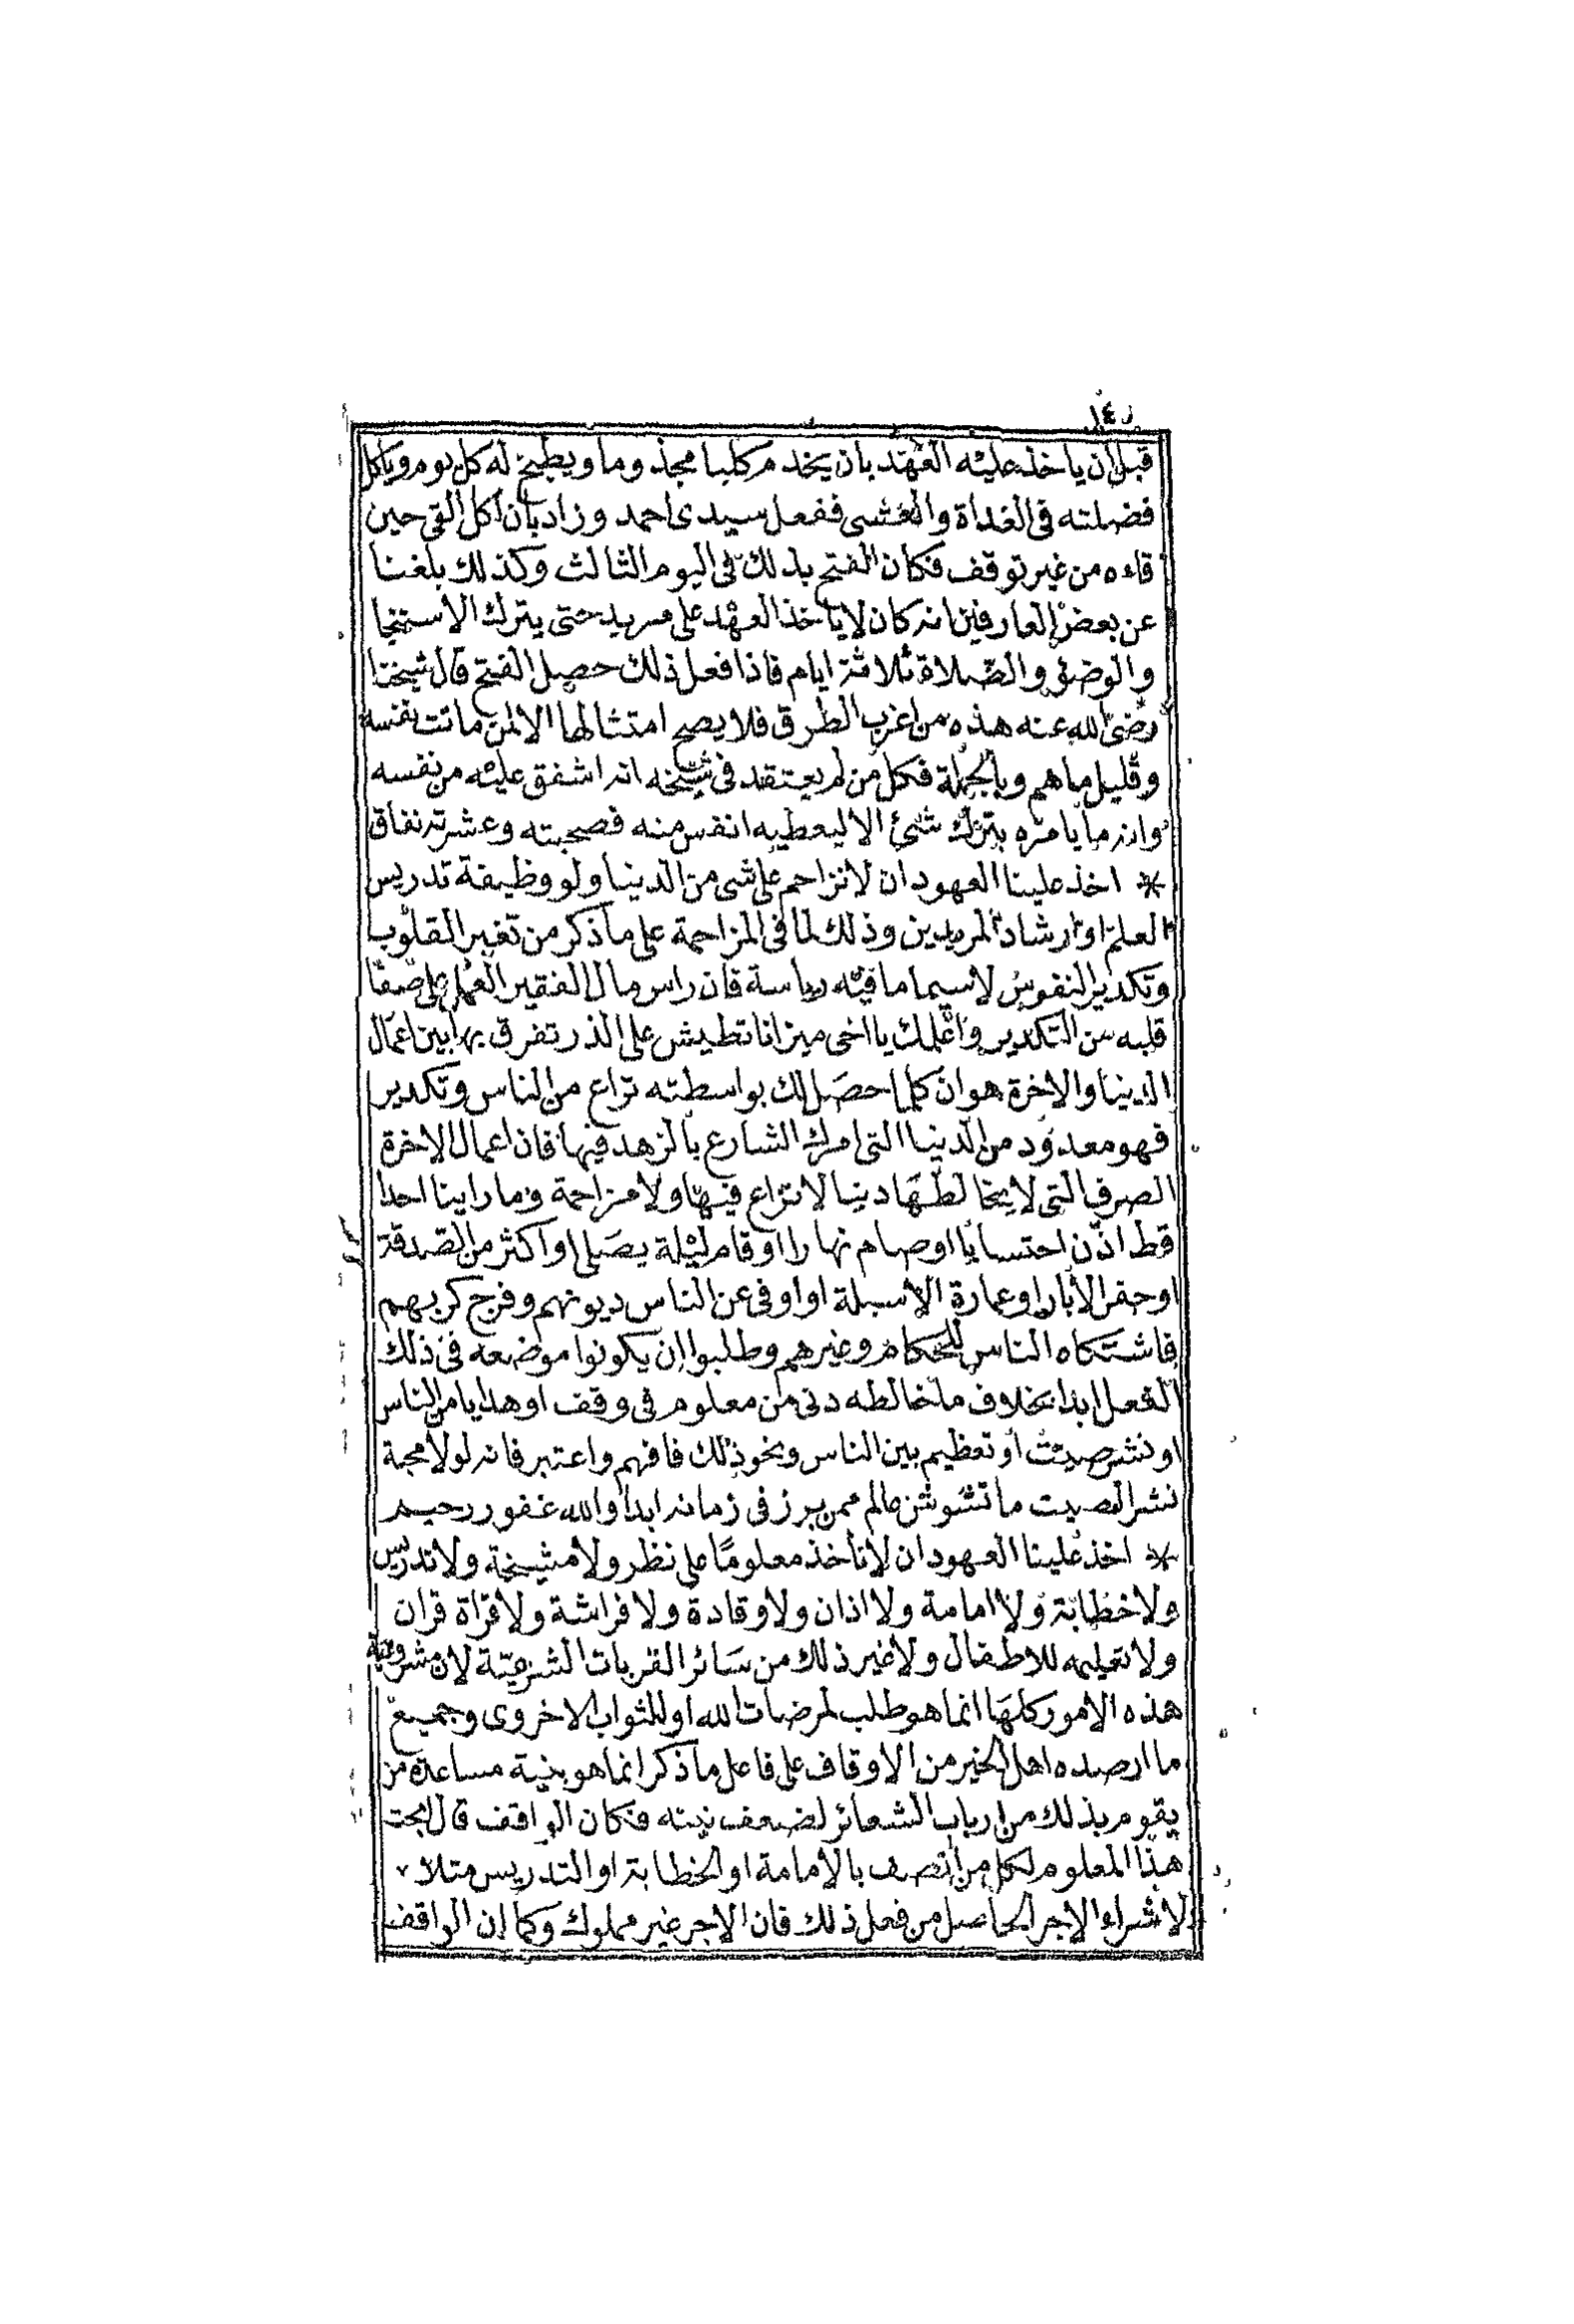 ١٤
قبل ان ياخذ عليه العهد بان يخدم كلبا مجذوما ويطبخ له كل يوم وياكل
فضلته في الغداة والعشى ففعل سيدى احمد وزاد بان اكل القئ حين
قاءه من غير توقف فكان الفتح بذلك في اليوم الثالث وكذلك بلغنا
عن بعض العارفين انه كان لا ياخذ العهد على مريد حتى يترك الاستنجا
والوضؤ والصلاة ثلاثة ايام فاذا فعل ذلك حصل الفتح قال شيخنا
رضى الله عنه هذه من اغرب الطرق فلا يصح امتثالها الا لمن ماتت نفسه
وقليل ما هم وبالجملة فكل من لم يعتقد في شيخه انه اشفق عليه من نفسه
وانه ما يامره بترك شئ الا ليعطيه انفس منه فصحبته وعشرته نفاق
* اخذ علينا العهود ان لا نزاحم على شى من الدنيا ولو وظيفة تدريس
العلم او ارشاد المريدين وذلك لما في المزاحمة على ما ذكر من تغير القلوب
وتكدير النفوس لاسيما ما فيه رياسة فان راس مال الفقير العمل على صفا
قلبه من التكدير واعلمك يا اخى ميزانا تطيش على الذر تفرق بها بين اعمال
الدنيا والاخرة هو ان كلما حصل لك بواسطته نزاع من الناس وتكدير
فهو معدود من الدنيا التى امرك الشارع بالزهد فيها فان اعمال الاخرة
الصرف التى لا يخالطها دنيا لا نزاع فيها ولا مزاحمة وما راينا احدا
قط اذن احتسابا او صام نهارا او قام ليلة يصلى او اكثر من الصدقة
او حفر الابار او عمارة الاسبلة او اوفى عن الناس ديونهم وفرج كربهم
فاشتكاه الناس للحكام وغيرهم وطلبوا ان يكونوا موضعه في ذلك
الفعل ابدا بخلاف ما خالطه دنى من معلوم في وقف او هدايا من الناس
او نشر صيت او تعظيم بين الناس ونحو ذلك فافهم واعتبر فانه لولا محبة
نشر الصيت ما تشوش عالم ممن برز في زمانه ابدا والله غفور رحيم
* اخذ علينا العهود ان لا ناخذ معلوما على نظر ولا مشيخة ولا تدريس
ولا خطابة ولا امامة ولا اذان ولا وقادة ولا فراشة ولا قراة قران
ولا تعليمه للاطفال ولا غير ذلك من سائر القربات الشرعية لان مشروعية
هذه الامور كلها انما هو طلب لمرضات الله او للثواب الاخروى وجميع
ما ارصده اهل الخير من الاوقاف على فاعل ما ذكر انما هو بنية مساعدة من
يقوم بذلك من ارباب الشعائر لضعف نيته فكان الواقف قال ابحت
هذا المعلوم لكل من اتصف بالامامة او الخطابة او التدريس مثلا
لا شراء الاجر الحاصل من فعل ذلك فان الاجر غير مملوك وكما ان الواقف